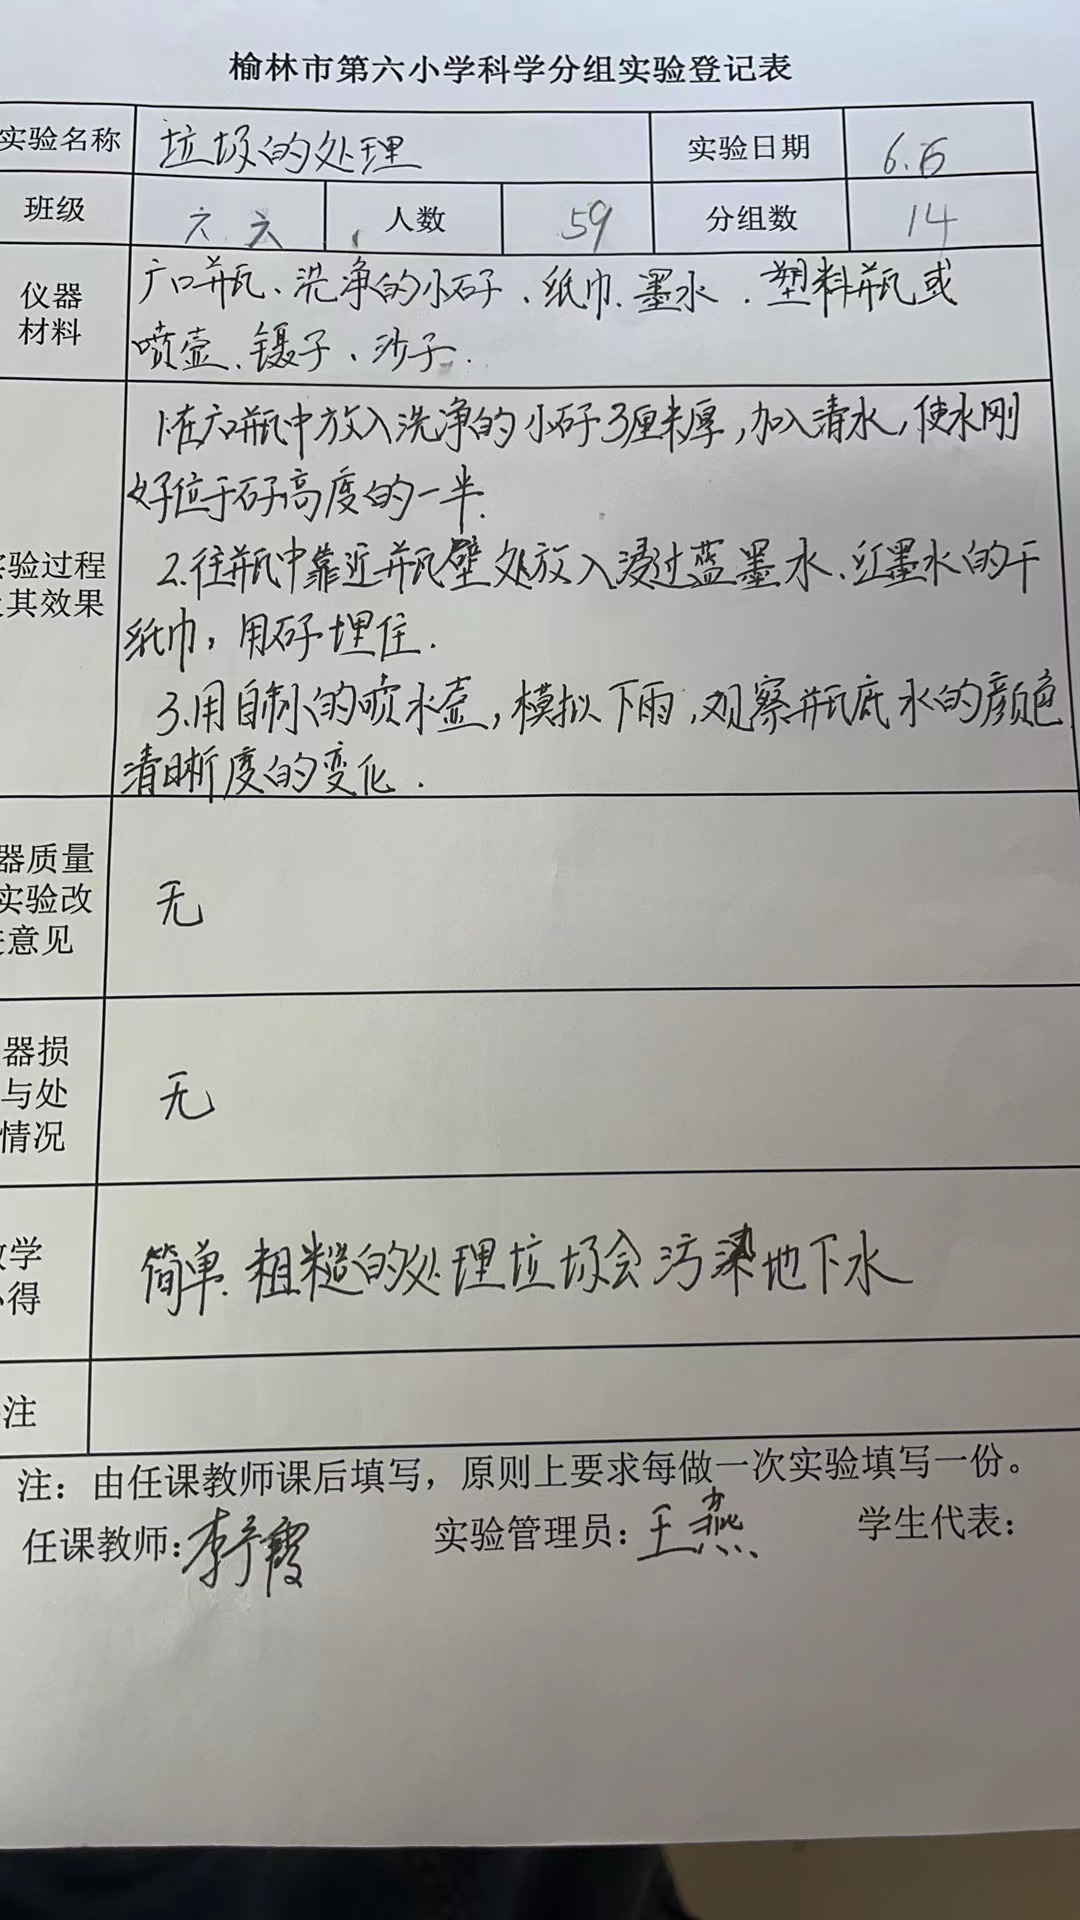 榆林市第六小学科学分组实验登记表
实验名称 垃圾的处理 实验日期
班级 六.六 人数 59 分组数 14
仪器 广口瓶、洗净的小石子、纸巾、墨水、塑料瓶或
材料 喷壶、镊子、沙子.
1.在广口瓶中放入洗净的小石子3厘米厚,加入清水,使水刚
好位于石子高度的一半.
验过程 2.往瓶中靠近瓶壁处放入浸过蓝墨水、红墨水的干
其效果 纸巾,用石子埋住.
3.用自制的喷水壶,模拟下雨,观察瓶底水的颜色
清晰度的变化.
器质量
实验改 无
意见
器损
与处 无
情况
学 简单.粗糙的处理垃圾会污染地下水
得
注
注：由任课教师课后填写，原则上要求每做一次实验填写一份。
任课教师: 李 霞 实验管理员: 王燕 学生代表: